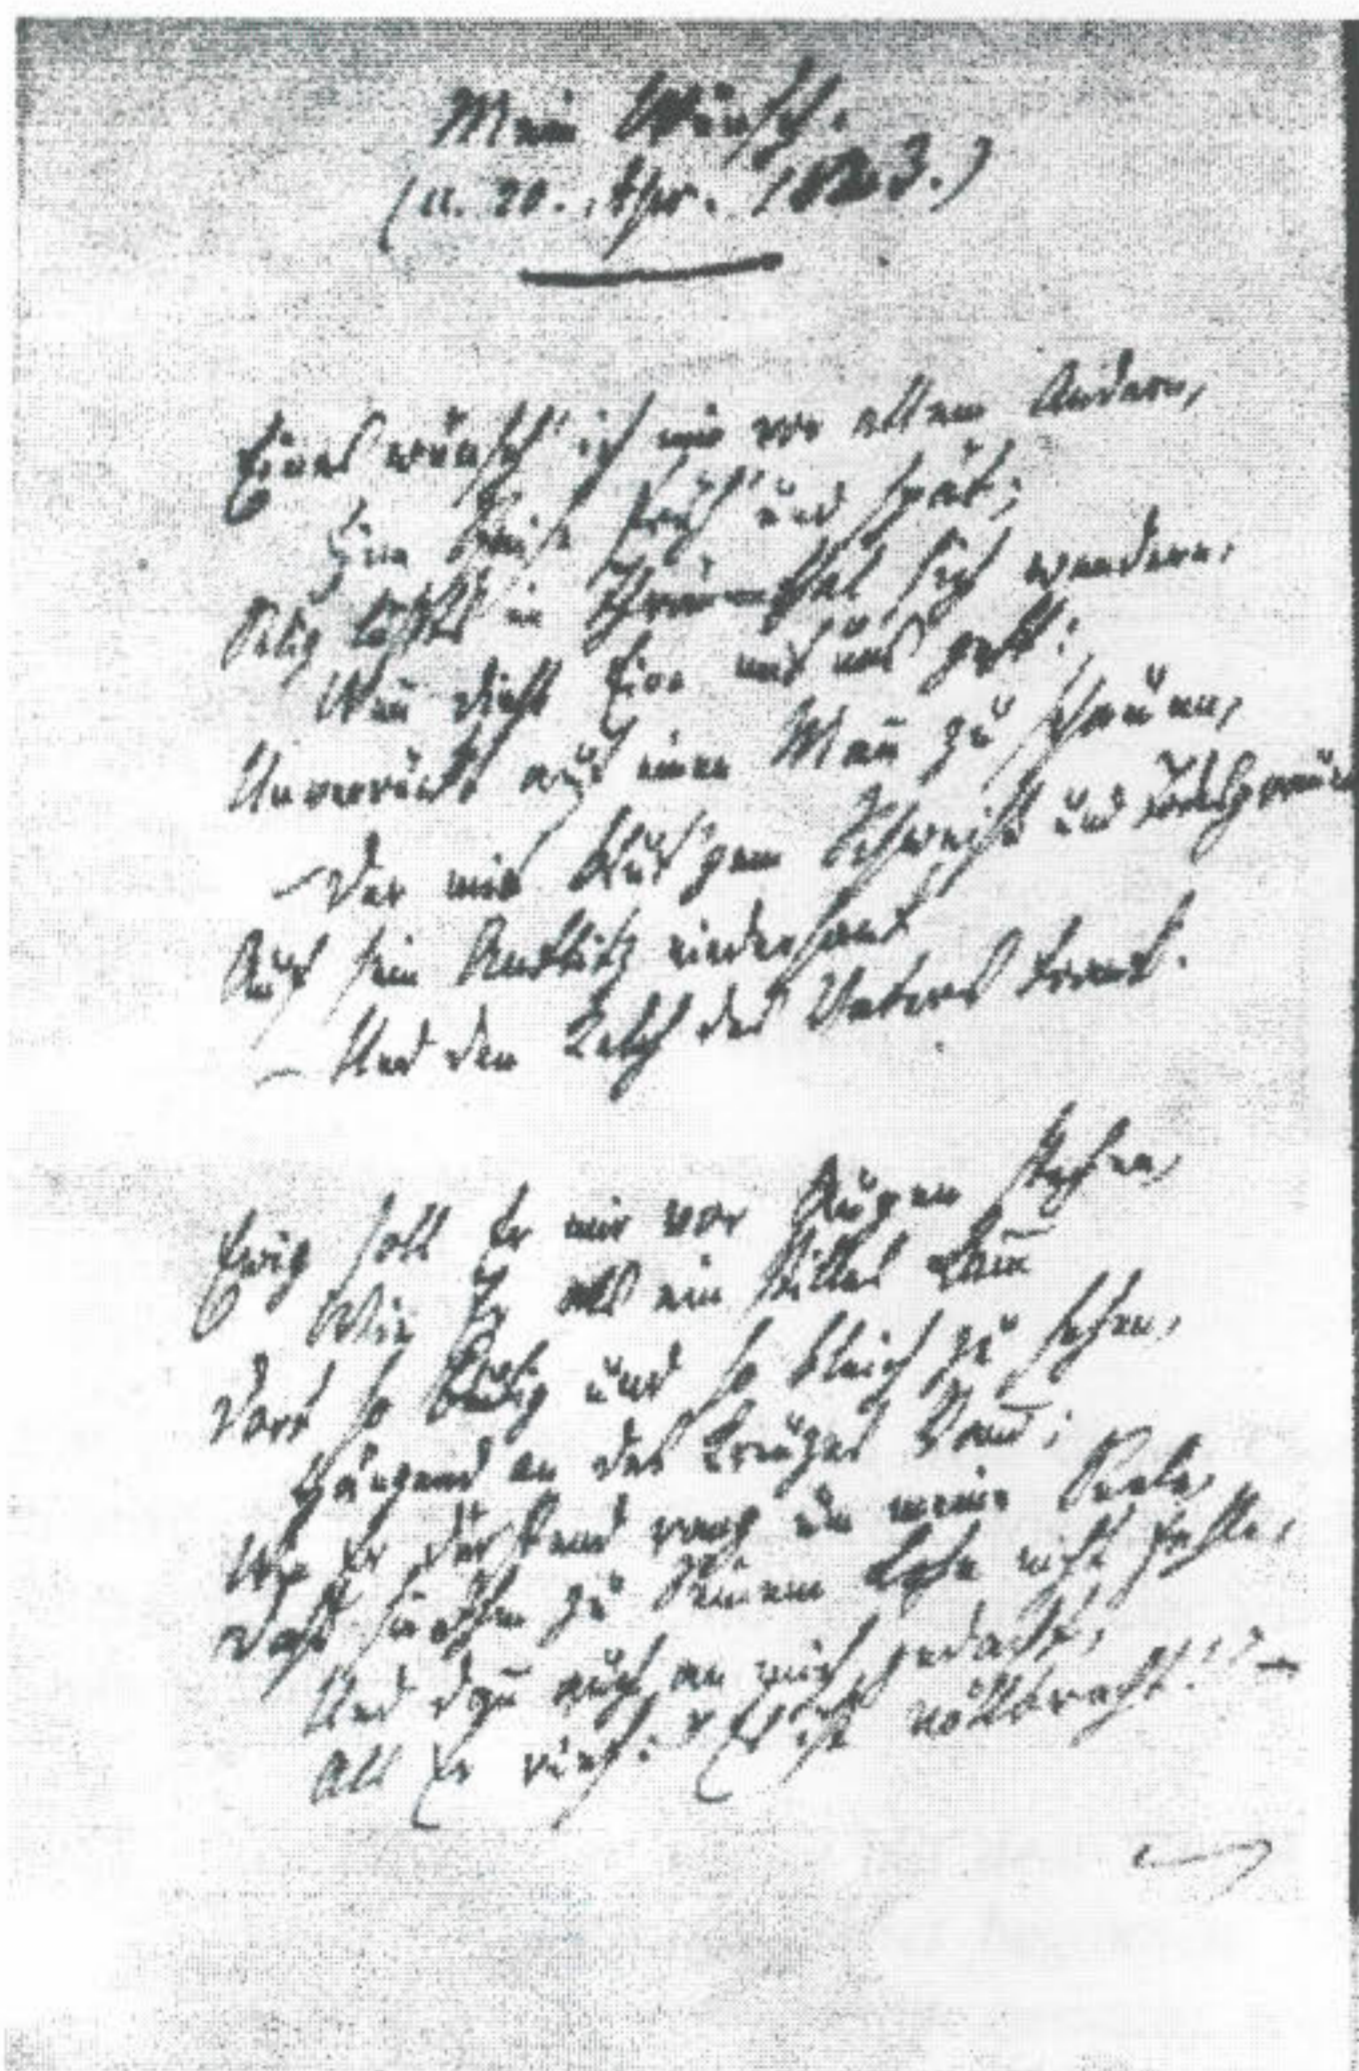 Mein Wunsch.
(d. 20. Apr. 1823.)
Eines wünsch' ich mir vor allem Andern,
Eine Speise früh' und spät;
Selig läßts im Thränenthal sich wandern,
Wen̄ dieß Eine mit uns geht:
Unverrückt auf einen Man̄ zu schauen,
– Der mit blut'gem Schweiße und Todesgrauen
Auf sein Antlitz niedersank
– Und den Kelch des Vaters trank.
Ewig soll Er mir vor Augen stehen,
Wie Er als ein stilles Lam̄
Dort so blutig und so bleich zu sehen,
Hängend an des Kreuzes Stam̄;
Wie Er dürstend rang um meine Seele,
Daß sie Ihm zu Seinem Lohn nicht fehle,
Und dan̄ auch an mich gedacht,
Als Er rief: "Es ist vollbracht!" –